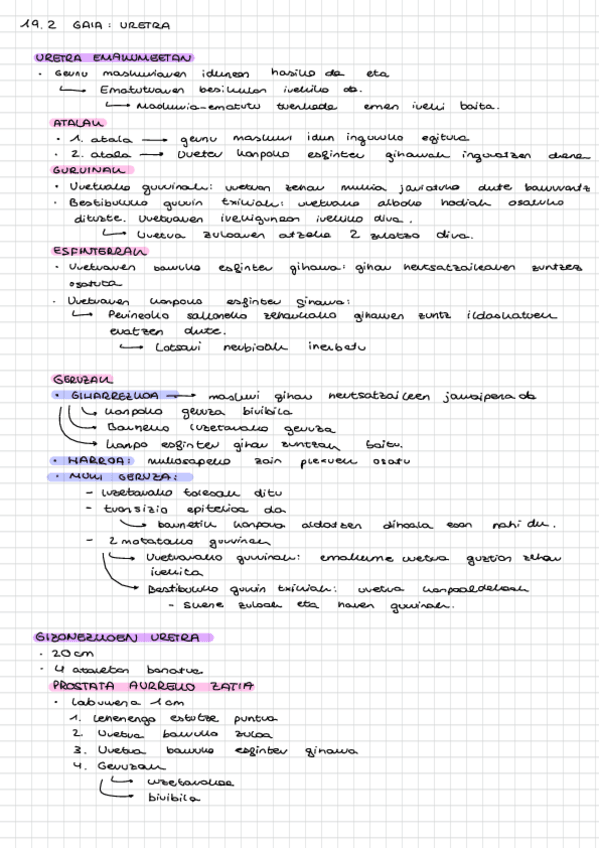 19.2 GAIA: URETRA
URETRA EMAKUMEETAN
· Gernu maskuriaren idunean hasiko da eta
↳ Ematutuaren besikulan irekiko da.
↳ Maskuria-ematutu trenkada emen ireki baita.
ATALAK
· 1. atala → gernu maskuri idun inguruko egitura
· 2. atala → Uretra kanpoko esfinter giharrak inguratzen duena
GURUINAK
· Uretrako guruinak: uretran zehar mukia jariatuko dute barrurantz
· Bestibuluko guruin txikiak: uretrako alboko hodiak osatuko
dituzte. Uretraren irekigunean irekiko dira.
↳ Uretra zuloaren atzeko 2 zulotxo dira.
ESFINTERRAK
· Uretraren barruko esfinter giharra: gihar hertsatzailearen zuntzez
osatuta
· Uretraren kanpoko esfinter giharra:
↳ Perineoko sakoneko zeharkako giharren zuntz ildaskatuek
eratzen dute.
↳ Lotsari nerbioak inerbatu
GERUZAK
· GIHARREZKOA → maskuri gihar hertsatzaileen jarraipena da
↳ kanpoko geruza biribila
↳ Barneko luzetarako geruza
↳ kanpo esfinter gihar zuntzak baitu.
· HARROA: mukosapeko zain plexuek osatu
· MUKI GERUZA:
- luzetarako tolesak ditu
- transizio epitelioa da
↳ barnetik kanpora aldatzen dihoala esan nahi du.
- 2 motatako guruinak
↳ Uretrarako guruinak: emakume uretra guztian zehar
irekita
↳ Bestibuluko guruin txikiak: uretra kanpoaldekoak
- skene zuloak eta haren guruinak.
GIZONEZKOEN URETRA
· 20 cm
· 4 ataletan banatua
PROSTATA AURREKO ZATIA
· Laburrena 1 cm
1. Lehenengo estutze puntua
2. Uretra barruko zuloa
3. Uretra barruko esfinter giharra
4. Geruzak
↳ luzetarakoa
↳ biribila